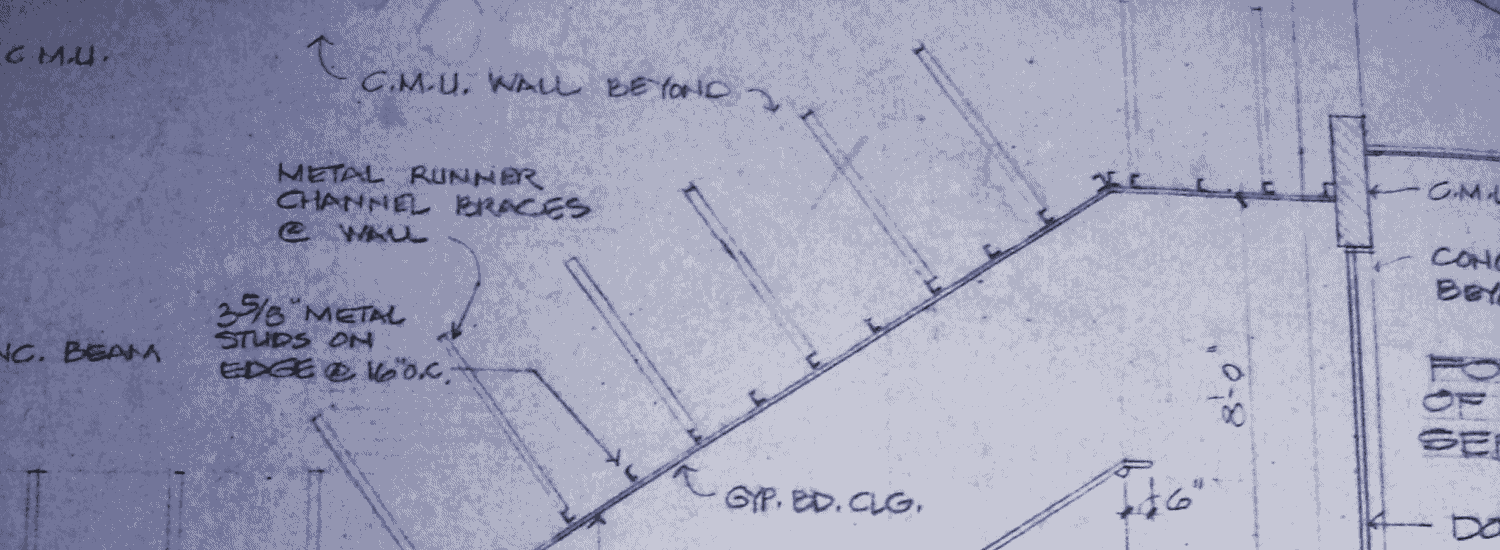 C M.U.
C.M.U. WALL BEYOND
METAL RUNNER
CHANNEL BRACES
@ WALL
3 5/8" METAL
STUDS ON
EDGE @ 16" O.C.
BEAM
GYP. BD. CLG.
8'-0"
6"
OF